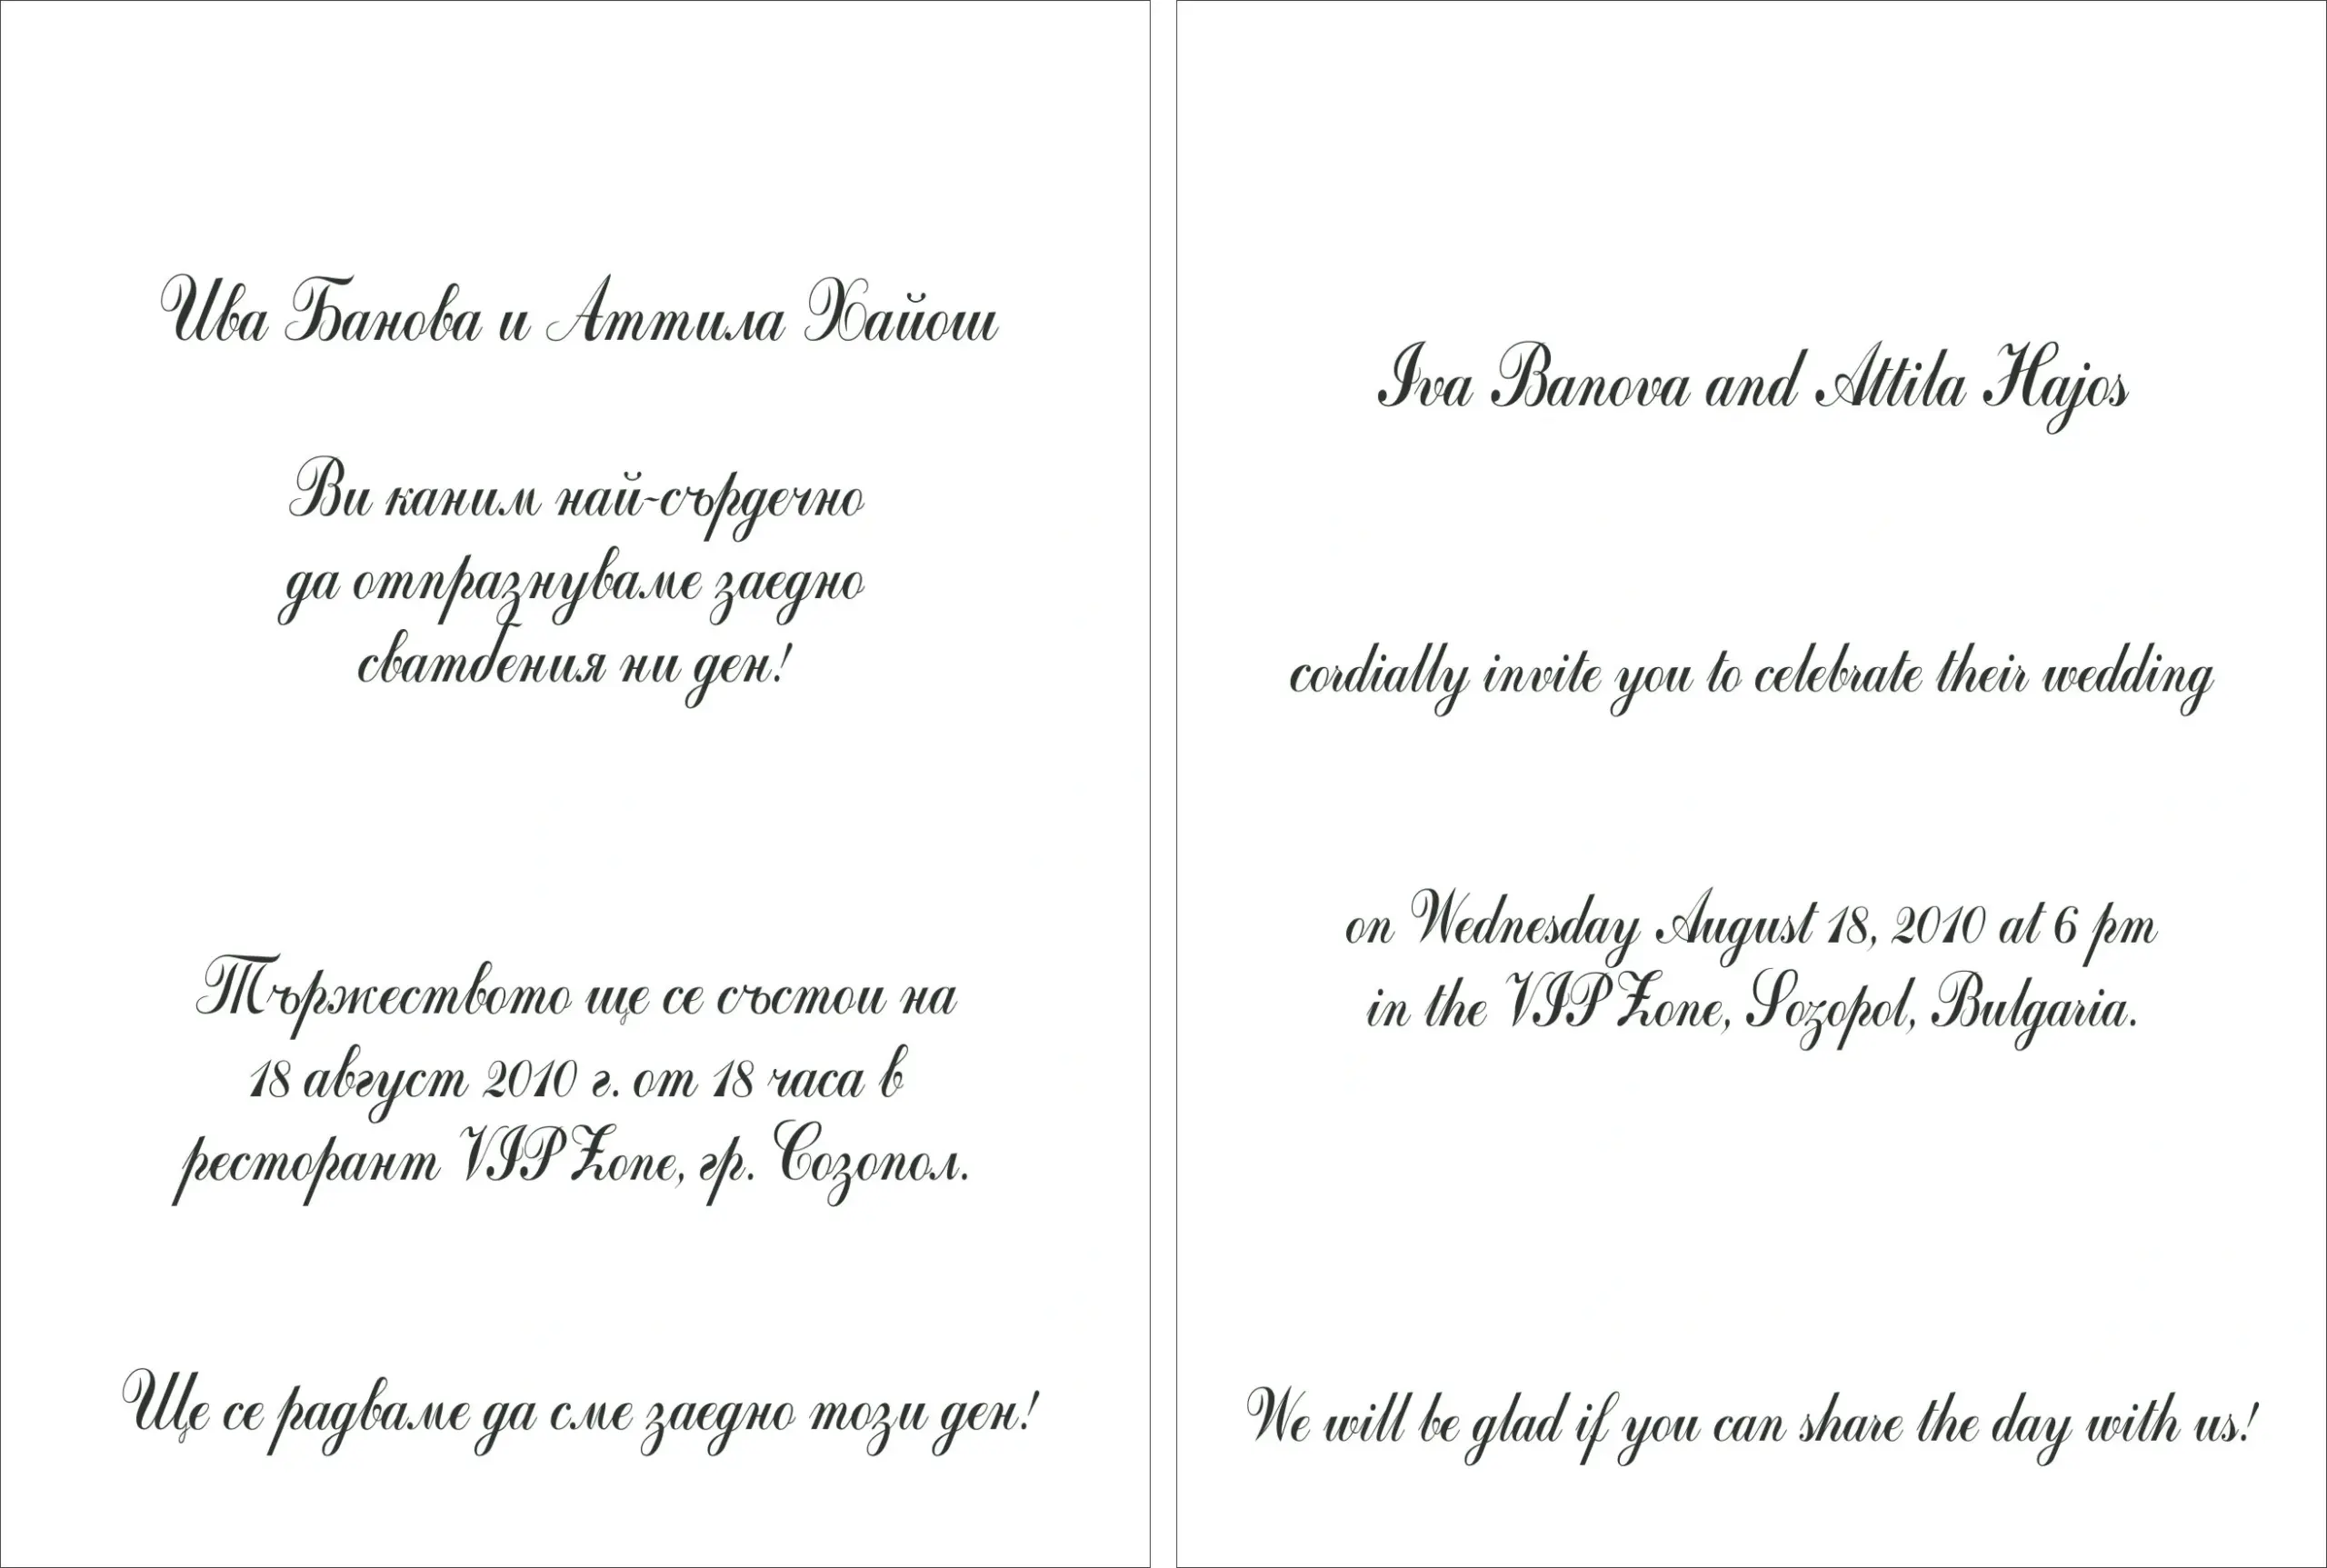 Ива Банова и Аттила Хайош
Ви каним най-сърдечно
да отпразнуваме заедно
сватбения ни ден!
Тържеството ще се състои на
18 август 2010 г. от 18 часа в
ресторант VIP Zone, гр. Созопол.
Ще се радваме да сме заедно този ден!
Iva Banova and Attila Hajos
cordially invite you to celebrate their wedding
on Wednesday August 18, 2010 at 6 pm
in the VIP Zone, Sozopol, Bulgaria.
We will be glad if you can share the day with us!